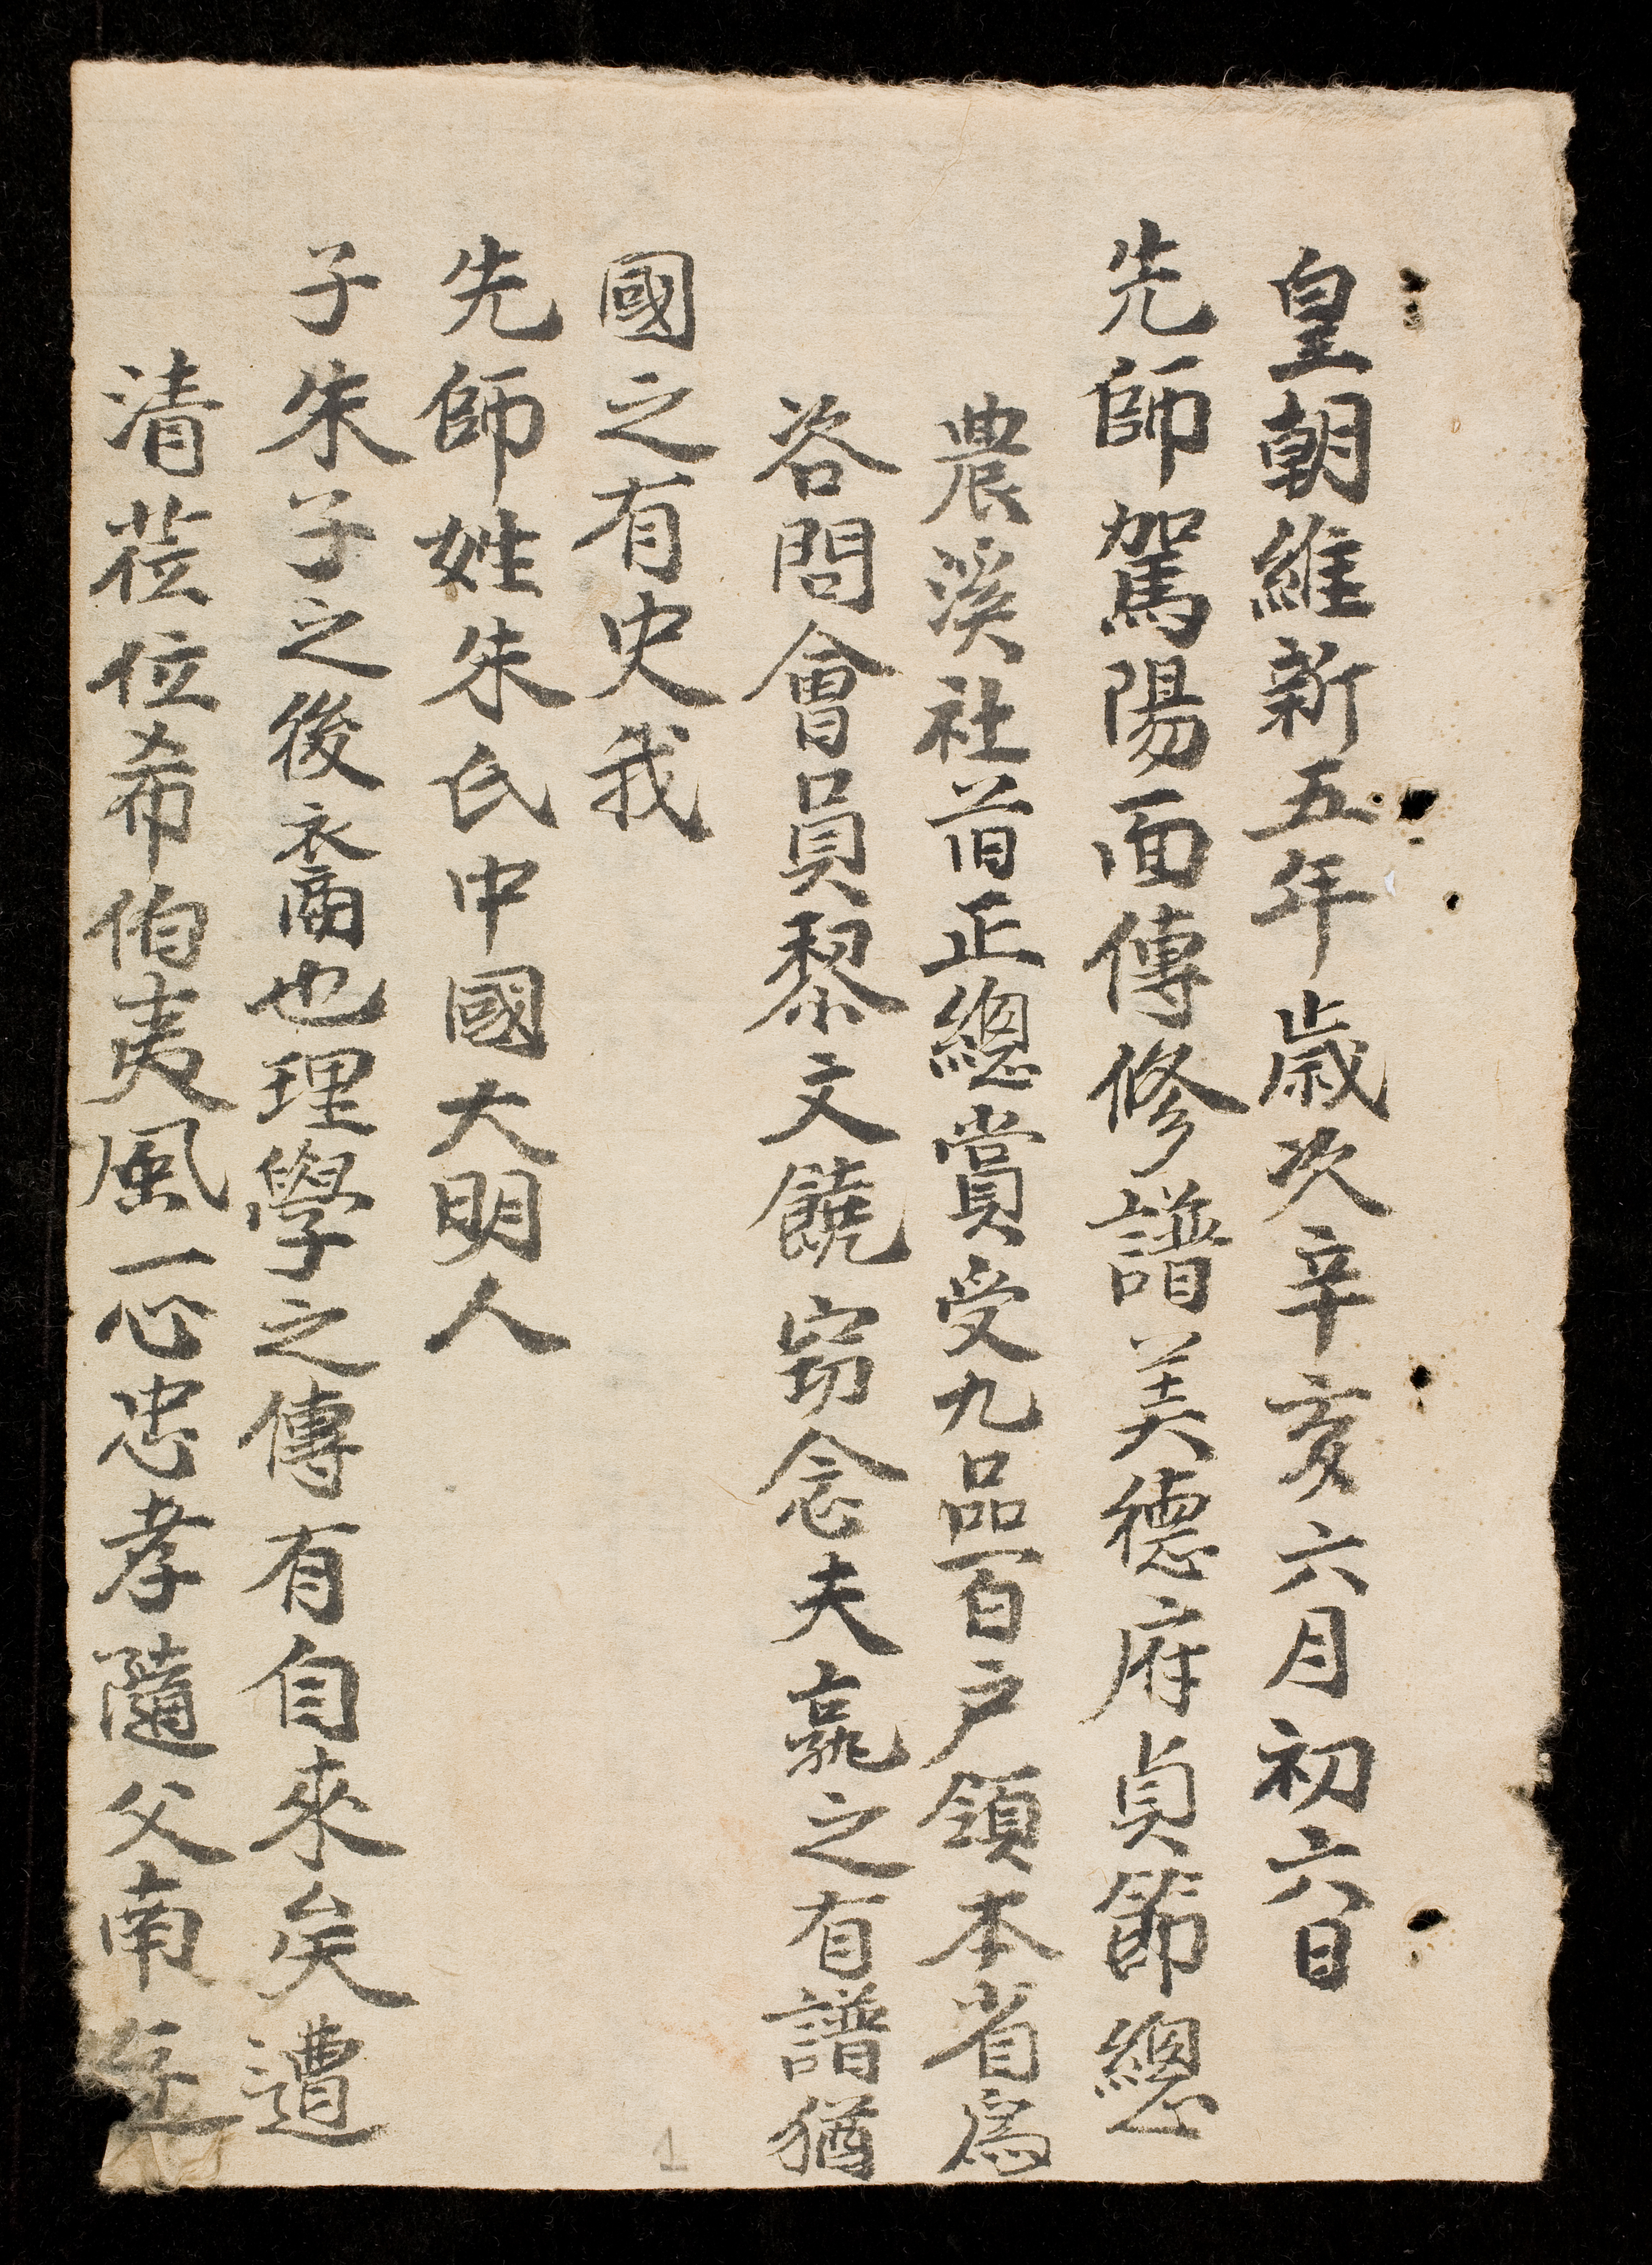 皇朝維新五年歲次辛亥六月初六日
先師駕陽面傳修譜美德府貞節總
農溪社首正總賞受九品百户領本省為
咨問會員黎文饒窃念夫䯨之有譜猶
國之有史我
先師姓朱氏中國大明人
子朱子之後裔也理學之傳有自來矣遭
清莅位希伯夷風一心忠孝隨父南